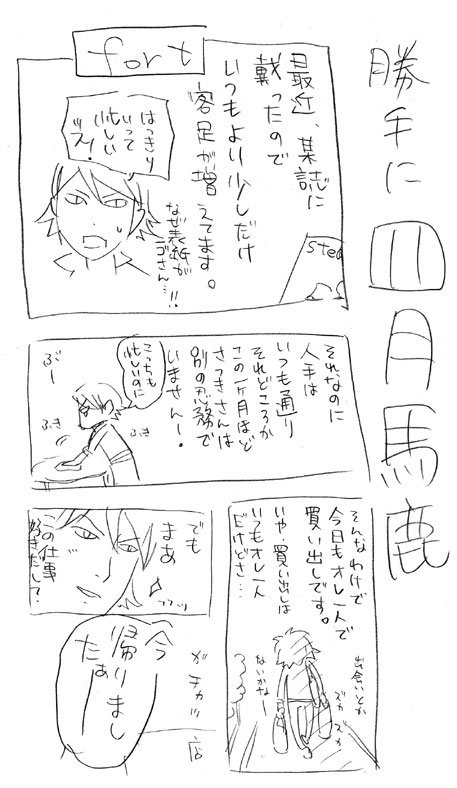 勝手に四月馬鹿
fort
最近、某誌に
載ったので
いつもより少しだけ
客足が増
えてます。
なぜ表紙が
ゴさん…!!
はっきり
いって
忙しい
ッス!
それなのに
人手は
いつも通り
それどころか
この一ヶ月ほど
さっきさんは
別の忍務で
いません!
こっちも
忙しいのに
ぶー
ふき
ふき
そんなわけで
今日もオレ一人で
買い出しです。
いや、買い出しは
いつもオレ一人
だけどさ…
出会いとか
ないかなー
ズカ
ズカ
でも
まあ
この仕事
好きだし?
フフッ
ガチャッ
店
今
帰りまし
たぁ